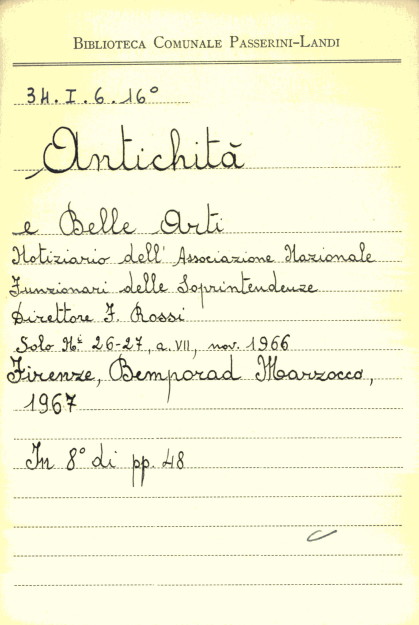 BIBLIOTECA COMUNALE PASSERINI-LANDI
34.I.6.16°
Antichità
e Belle Arti
Notiziario dell' Associazione Nazionale
Funzionari delle Soprintendenze
Direttore F. Rossi
Solo Nⁱ 26-27, a. VII, nov. 1966
Firenze, Bemporad Marzocco,
1967
In 8° di pp. 48